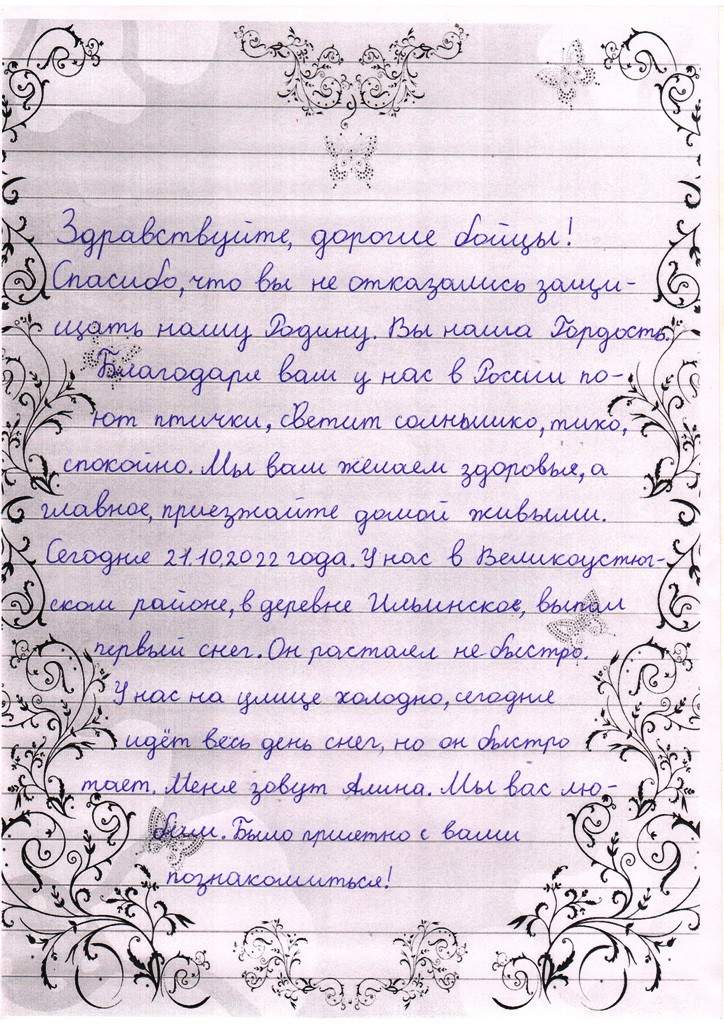 Здравствуйте, дорогие бойцы!
Спасибо, что вы не отказались защи-
щать нашу Родину. Вы наша Гордость.
Благодаря вам у нас в России по-
ют птички, светит солнышко, тихо,
спокойно. Мы вам желаем здоровья, а
главное, приезжайте домой живыми.
Сегодня 21.10.2022 года. У нас в Великоустюг-
ском районе, в деревне Ильинское, выпал
первый снег. Он растаял не быстро.
У нас на улице холодно, сегодня
идёт весь день снег, но он быстро
тает. Меня зовут Алина. Мы вас лю-
бим. Было приятно с вами
познакомиться!